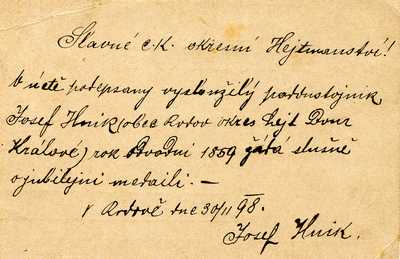 Slavné c.k. okresní Hejtmanství!
b uctě podepsany vysloužilý poddustojnik
Josef Hnik (obec Rodov okres hejt Dvur
Králové) rok Dvodní 1859 žádá slušně
o jubilejni medaili. —
V Rodově dne 30/11 98.
Josef Hnik.